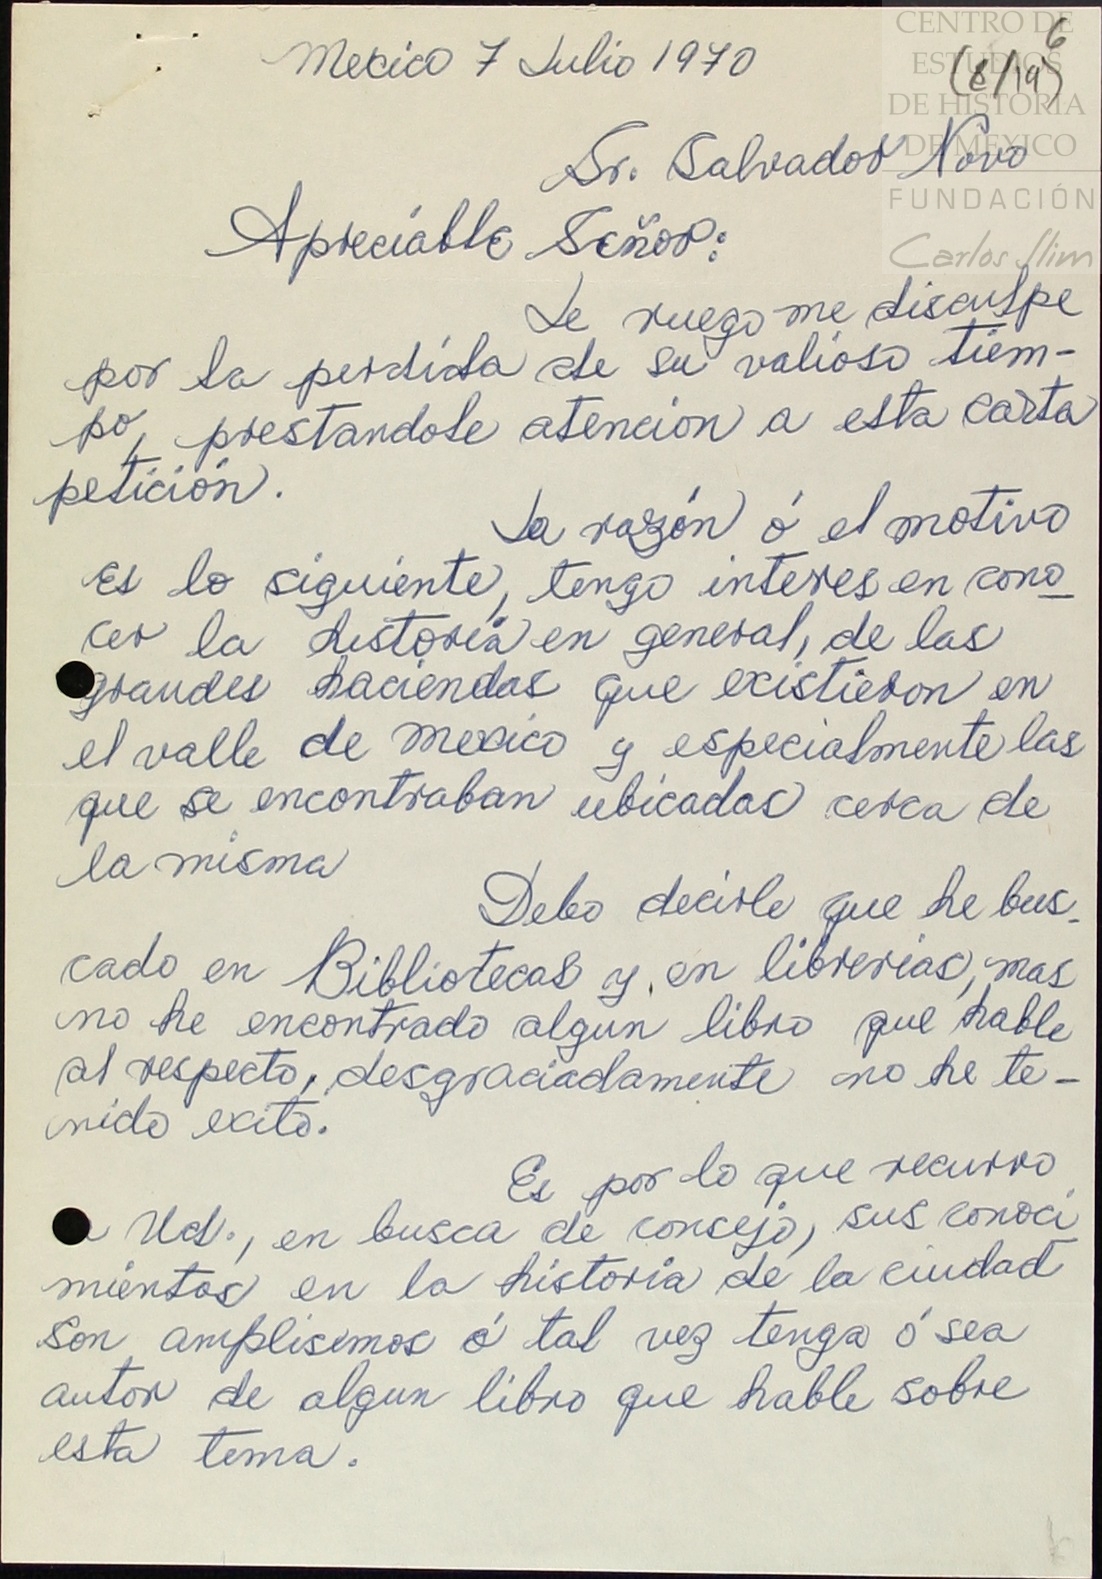 Mexico 7 Julio 1970
6
(8/19)
CENTRO DE
ESTUDIOS
DE HISTORIA
DE MÉXICO
FUNDACIÓN
Carlos Slim
Sr. Salvador Novo
Apreciable Señor:
Le ruego me disculpe
por la perdida de su valioso tiem-
po, prestandole atencion a esta carta
petición.
La razón ó el motivo
Es lo siguiente, tengo interes en cono-
cer la historia en general, de las
grandes haciendas que existieron en
el valle de Mexico y especialmente las
que se encontraban ubicadas cerca de
la misma
Debo decirle que he bus-
cado en Bibliotecas y en librerias, mas
no he encontrado algun libro que hable
al respecto, desgraciadamente no he te-
nido exito.
Es por lo que recurro
a Ud., en busca de consejo, sus conoci
mientos en la historia de la ciudad
son amplisimos ó tal vez tenga ó sea
autor de algun libro que hable sobre
esta tema.